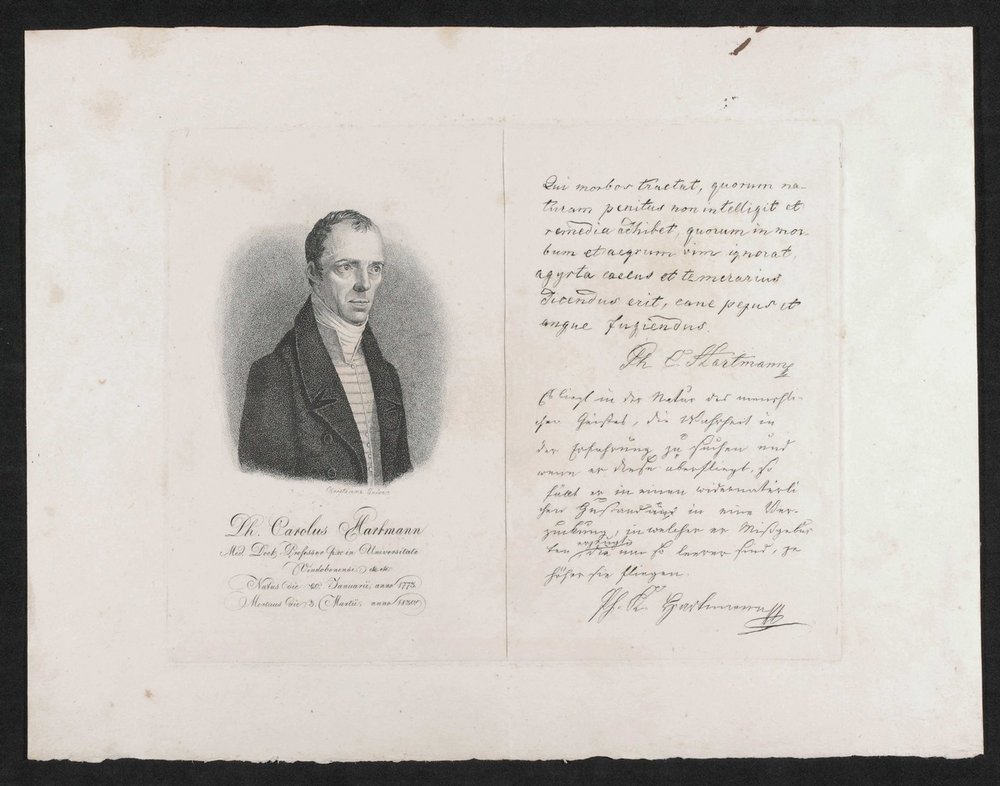 Ph. Carolus Hartmann
Med. Doct. Professor p. o. in Universitate
Vindobonensi, &c. &c.
Natus die 20. Januarii, anno 1773
Mortuus die 5. Martii, anno 1830
Qui morbos tractat, quorum na-
turam penitus non intelligit et
remedia adhibet, quorum in mor
bum et aegrum vim ignorat,
agyrta caecus et temerarius
dicendus erit, cane pejus et
angue fugiendus.
Ph C. Hartmann
Es liegt in der Natur des menschli-
chen Geistes, die Wahrheit in
der Erfahrung zu suchen und
wenn er diese überfliegt, so
fällt er in einen widernatürli
chen Zustand und in eine Ver-
zückung, in welcher er Mißgebur
ten erzeugt, die um so leerer sind, je
höher sie fliegen.
Ph. K. Hartmann